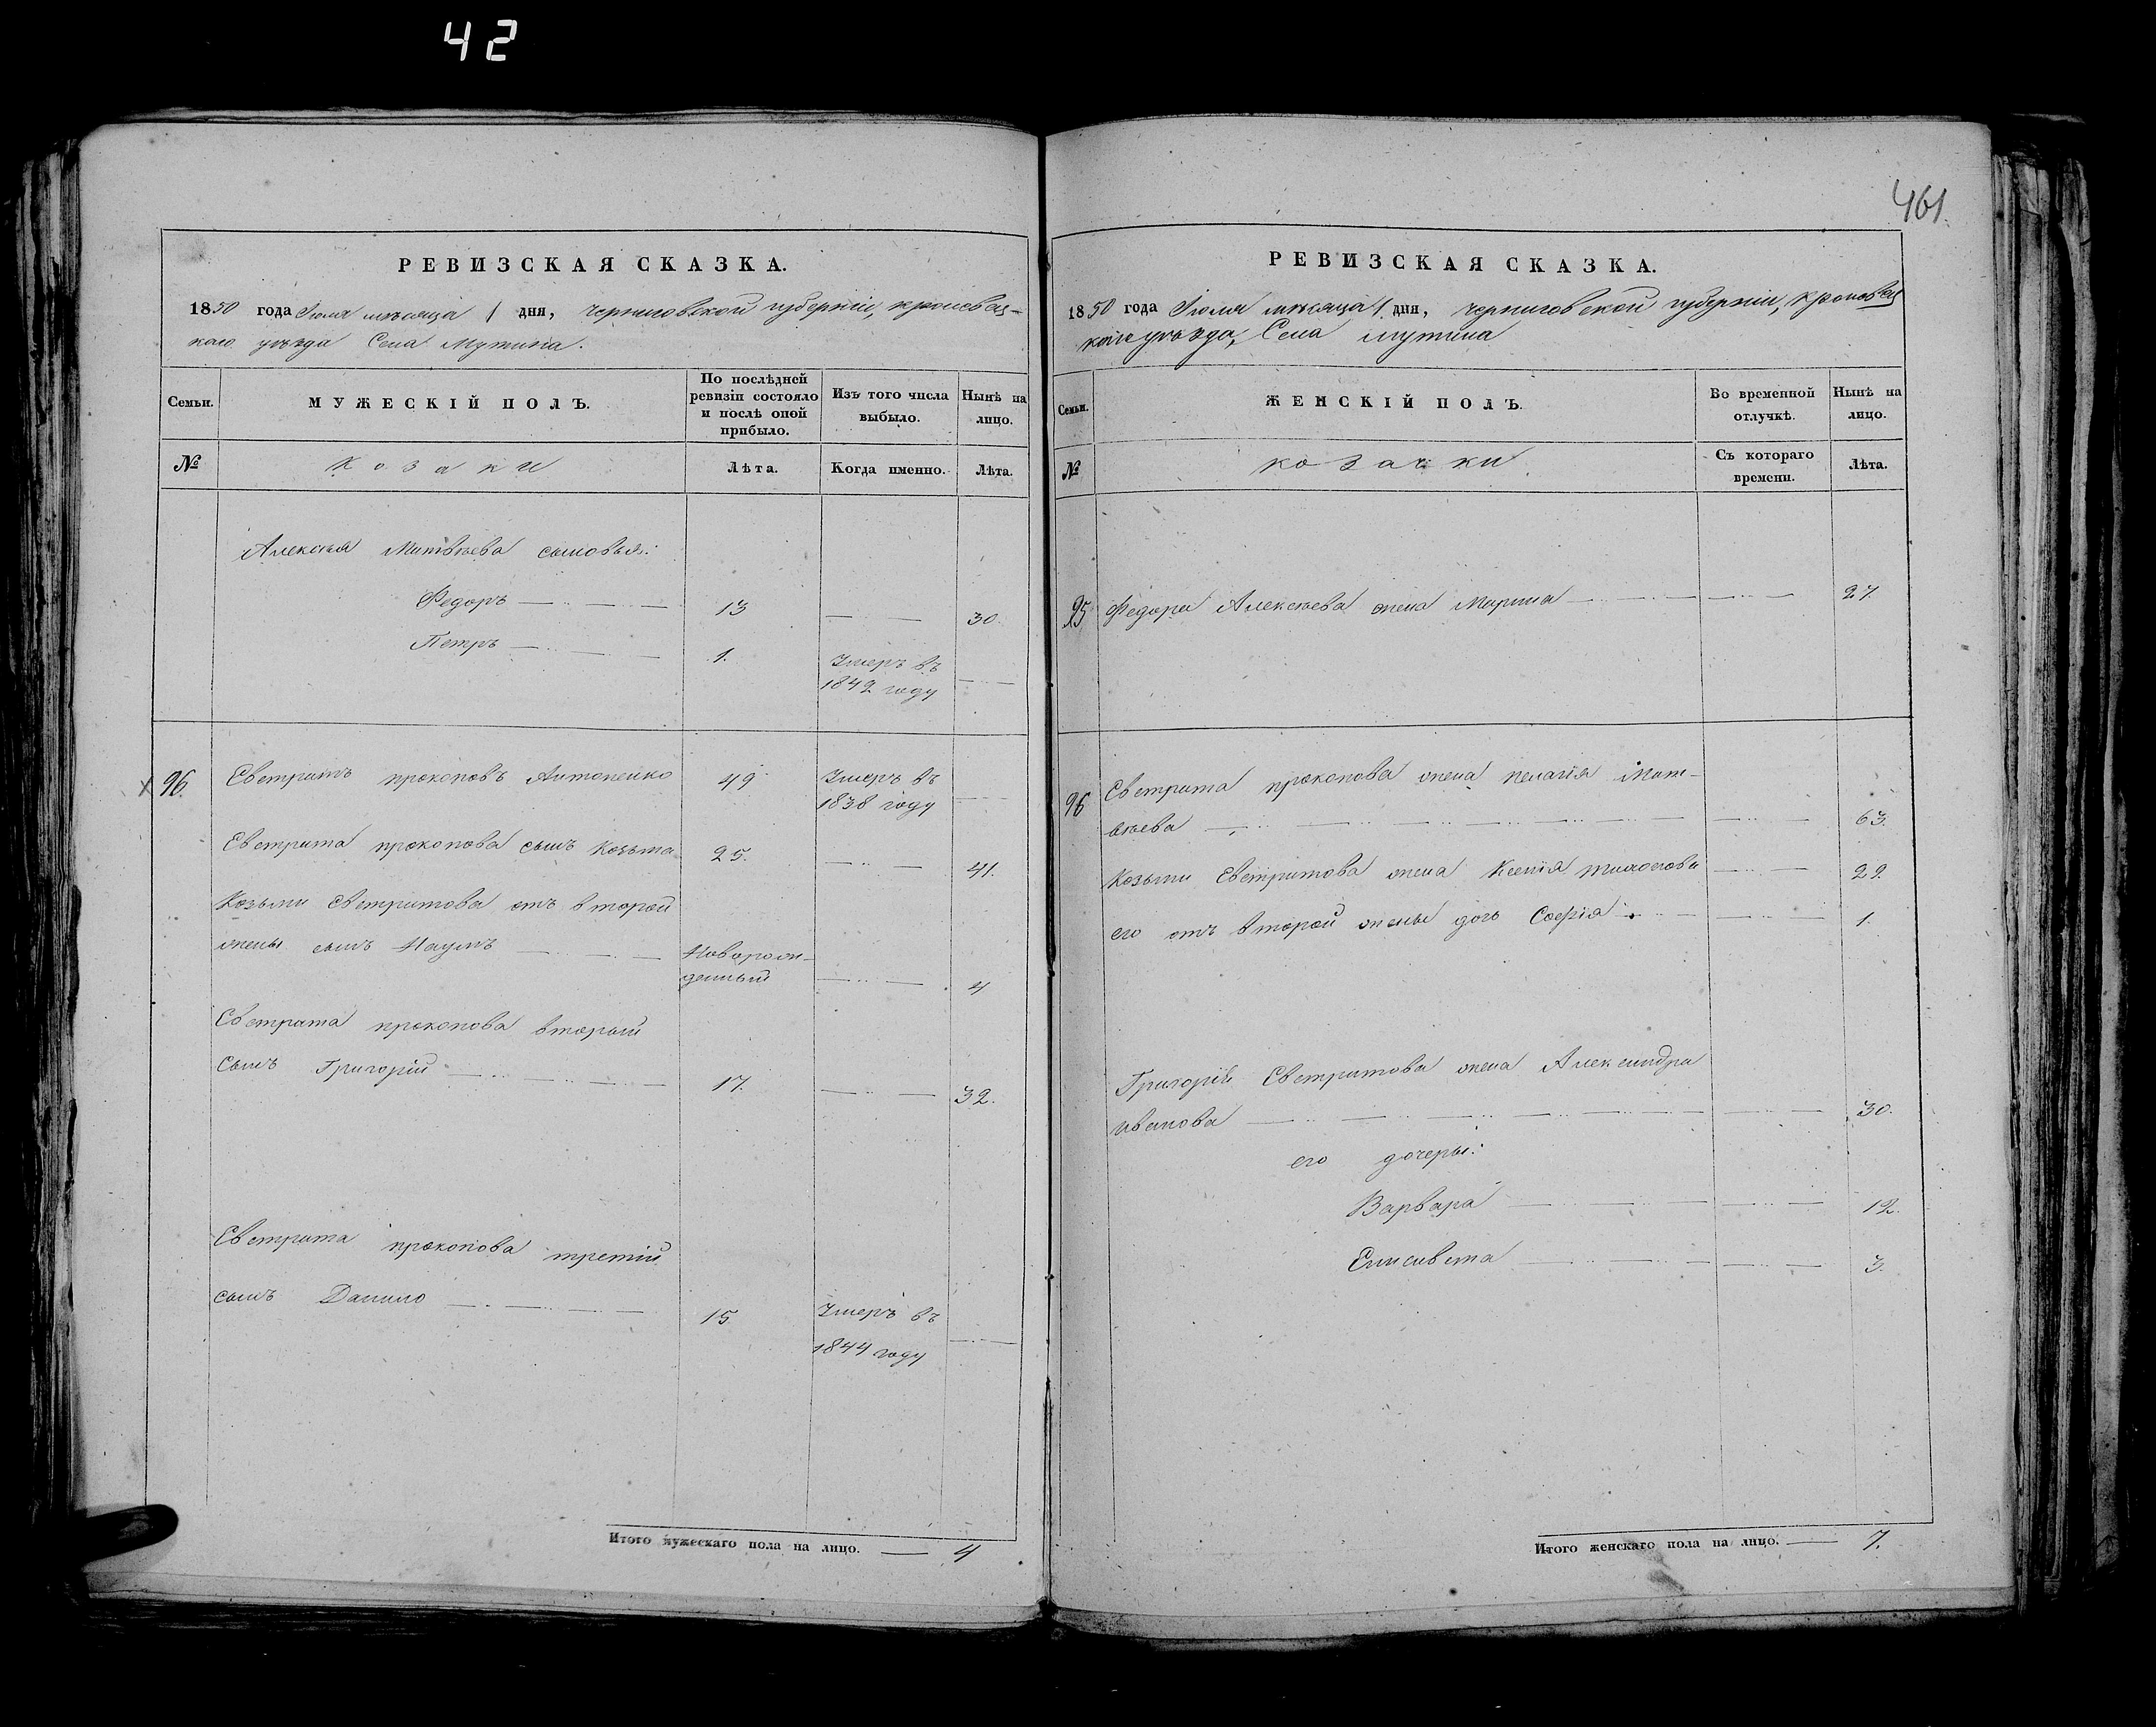 42
461.
РЕВИЗСКАЯ СКАЗКА.
1850 года Июля мѣсяца 1 дня, Черниговской губерніи, кролевец-
каго уѣзда Села Мутина.
Семьи.
МУЖЕСКІЙ ПОЛЪ.
По послѣдней ревизіи состояло и послѣ оной прибыло.
Изъ того числа выбыло.
Нынѣ на лицо.
№
Козаки
Лѣта.
Когда именно.
Лѣта.
Алексѣя Матвѣева сыновья:
Федоръ 13 30.
Петръ 1. Умеръ въ
1842 году
96. Евстратъ прокоповъ Антоненко 49 Умеръ въ
1838 году
Евстрата прокопова сынъ Козьма 25. 41.
Козьмы Евстратова отъ второй
жены сынъ Наумъ Новорож-
денный 4
Евстрата прокопова вторый
сынъ Григорій 17. 32.
Евстрата прокопова третій
сынъ Данило 15 Умеръ въ
1844 году
Итого мужескаго пола на лицо. 4
РЕВИЗСКАЯ СКАЗКА.
1850 года Июля мѣсяца 1 дня, черниговской губерніи, кролевец
каго уѣзда, Села мутина
Семьи.
ЖЕНСКІЙ ПОЛЪ.
Во временной отлучкѣ.
Нынѣ на лицо.
№
козачки
Съ котораго времени.
Лѣта.
95 Федора Алексѣева жена Марина 27.
96 Евстрата прокопова жена пелагія Мат-
вѣева 63.
Козьмы Евстратова жена Ксенія 29.
его отъ второй жены дочь Софія 1.
Григорія Евстратова жена Александра
иванова 30.
его дочери:
Варвара 12.
Елисавета 3.
Итого женскаго пола на лицо. 7.